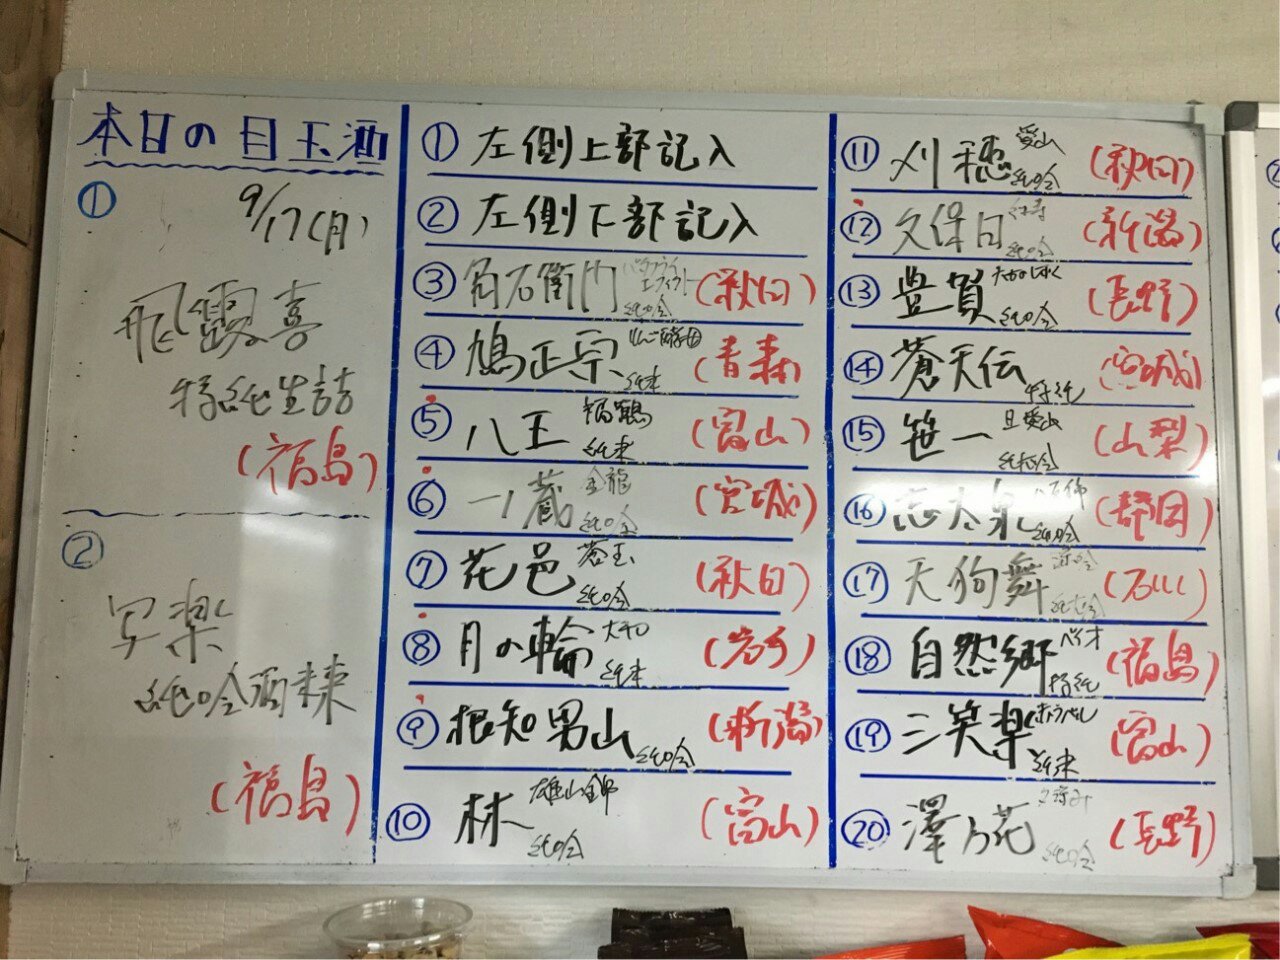 本日の目玉酒
①
9/17(月)
飛露喜
特純生詰
(福島)
②
写楽
純吟酒未来
(福島)
① 左側上部記入
② 左側下部記入
③ 角右衛門 純吟 (秋田)
④ 鳩正宗 純米 (青森)
⑤ 八王 福鶴 純米 (富山)
⑥ 一ノ蔵 金龍 純吟 (宮城)
⑦ 花邑 蒼玉 純吟 (秋田)
⑧ 月の輪 大和 純米 (岩手)
⑨ 根知男山 純吟 (新潟)
⑩ 林 雄山錦 純吟 (富山)
⑪ 刈穂 愛山 純吟 (秋田)
⑫ 久保田 純吟 (新潟)
⑬ 豊賀 純吟 (長野)
⑭ 蒼天伝 特純 (宮城)
⑮ 笹一 純吟 (山梨)
⑯ 志太泉 純吟 (静岡)
⑰ 天狗舞 (石川)
⑱ 自然郷 特純 (福島)
⑲ 三笑楽 純米 (富山)
⑳ 澤の花 純吟 (長野)